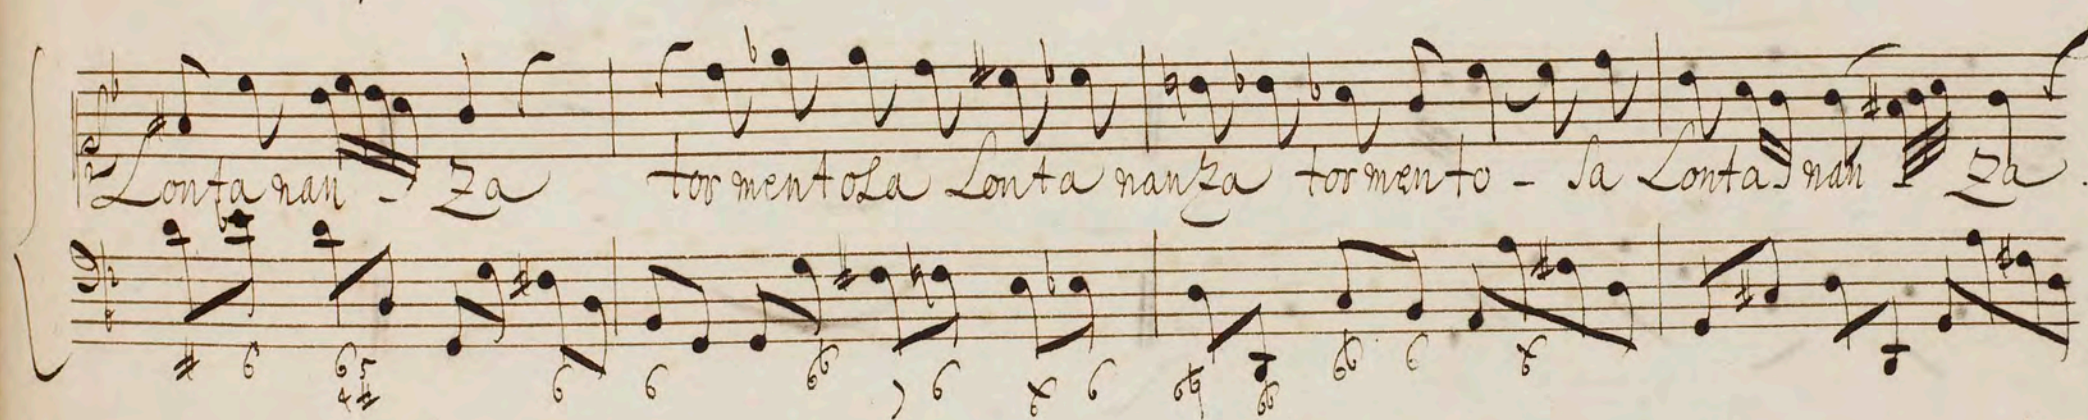 Lonta nan - za tor mentosa Lonta nanza tor mento - sa Lonta nan - za
# 6 6 5 6 6 6 6 x 6 6 6 6 6 x
4 #